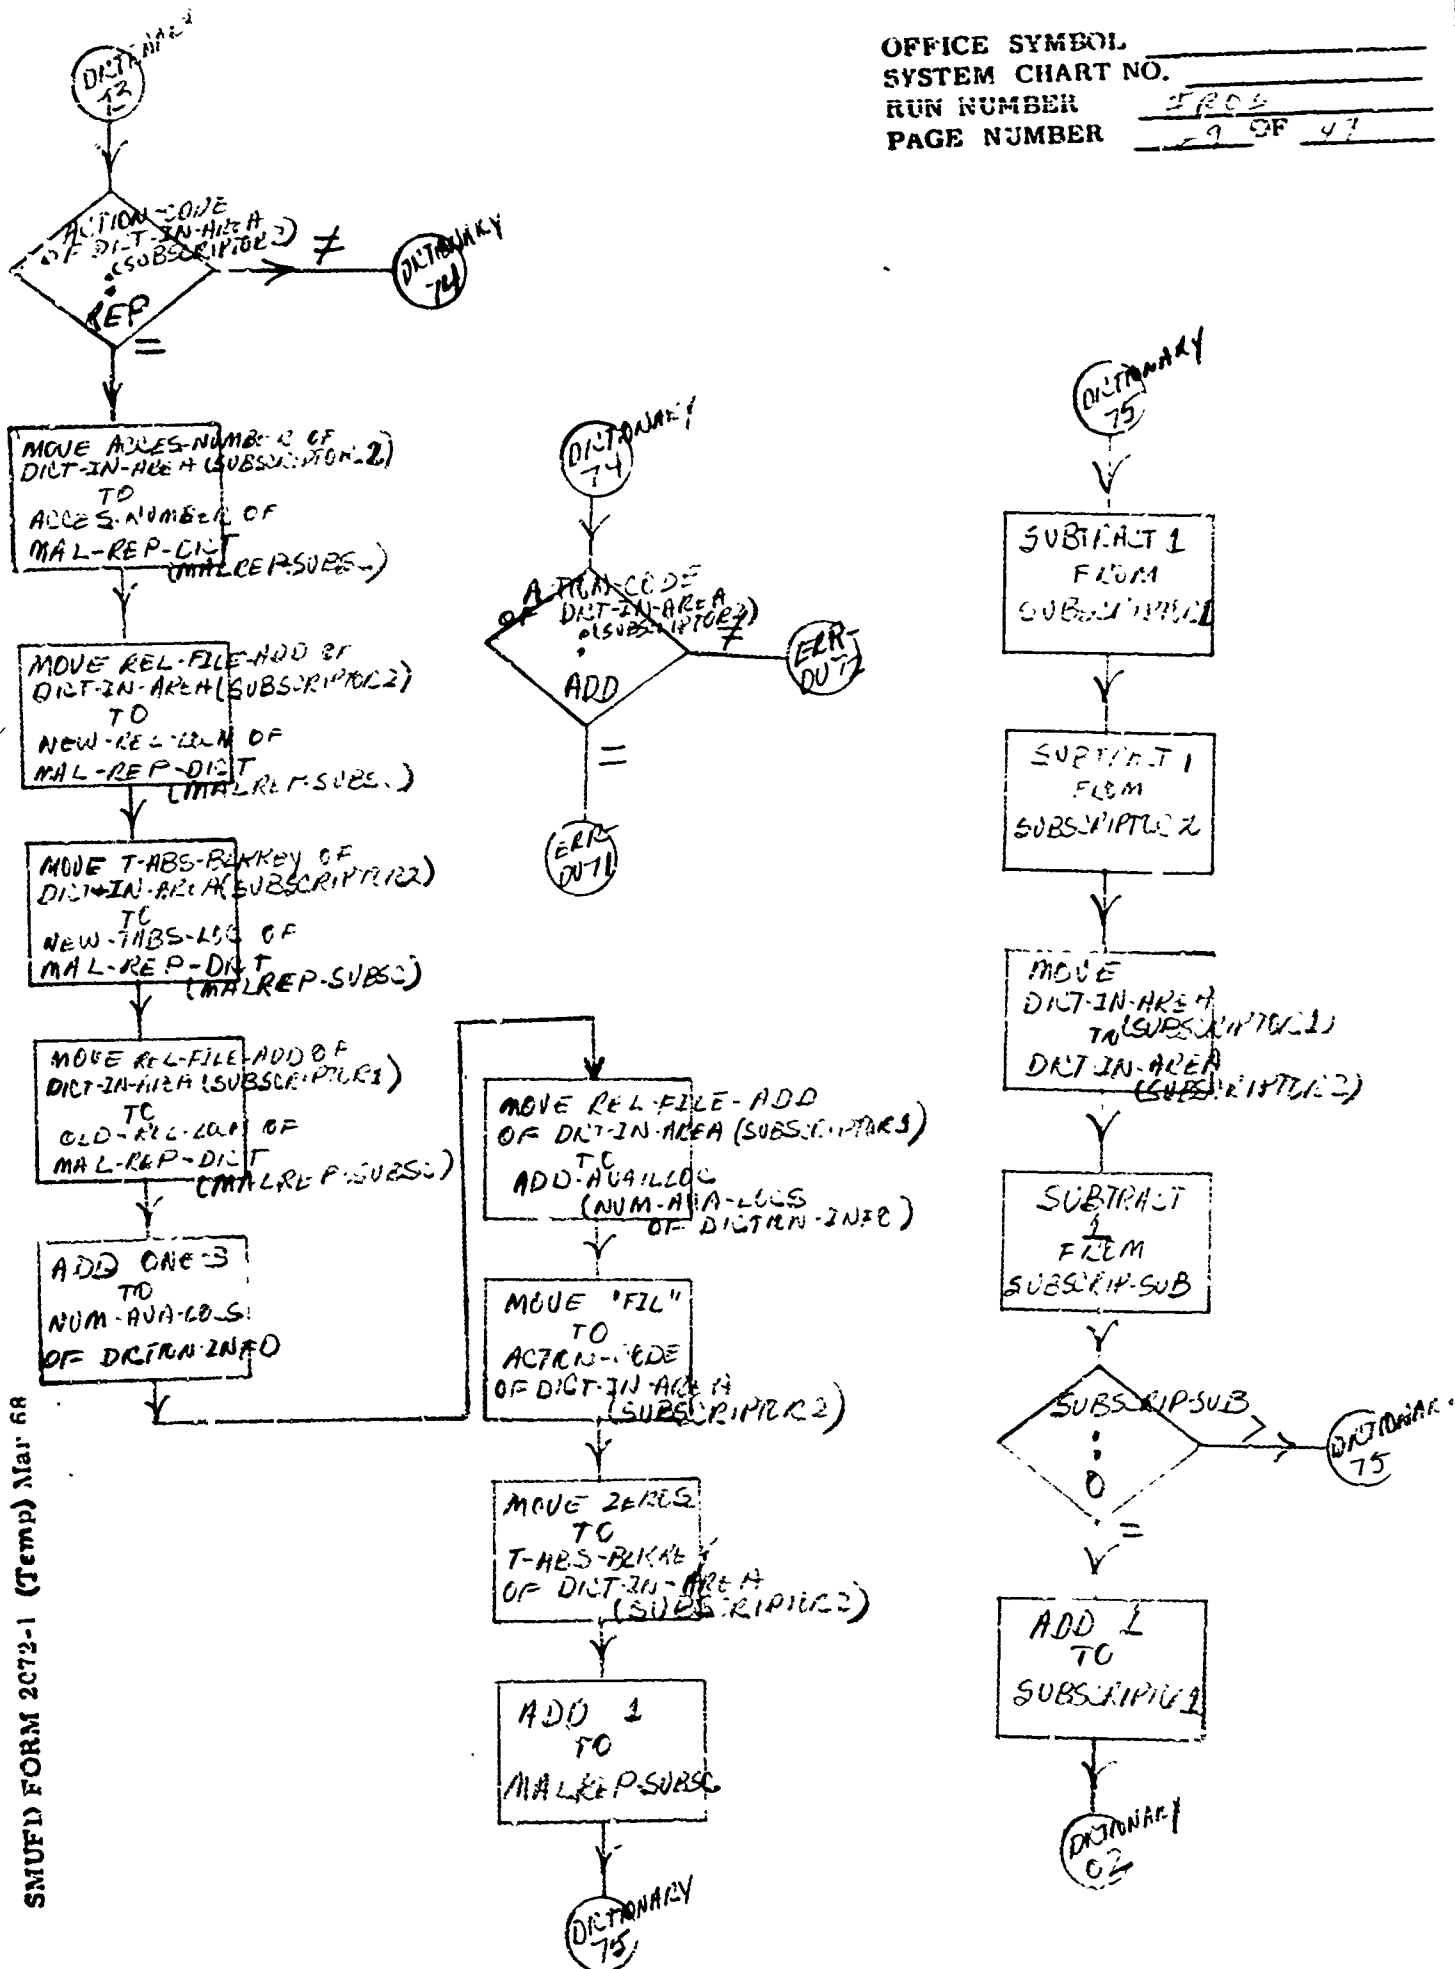 OFFICE SYMBOL
SYSTEM CHART NO.
RUN NUMBER
PAGE NUMBER OF
DICTIONARY
73
ACTION-CODE
OF DICT-IN-AREA
(SUBSCRIPTOR2)
:
REP
≠
DICTIONARY
74
=
MOVE ACCES-NUMBER OF
DICT-IN-AREA (SUBSCRIPTOR2)
TO
ACCES-NUMBER OF
MAL-REP-DICT
MOVE REL-FILE-ADD OF
DICT-IN-AREA (SUBSCRIPTOR2)
TO
NEW-REL-LOCN OF
MAL-REP-DICT
MOVE T-ABS-BLKKEY OF
DICT-IN-AREA (SUBSCRIPTOR2)
TO
NEW-TABS-LOC OF
MAL-REP-DICT
(MALREP-SUBSC)
MOVE REL-FILE-ADD OF
DICT-IN-AREA (SUBSCRIPTOR1)
TO
OLD-REL-LOCN OF
MAL-REP-DICT
(MALREP-SUBSC)
ADD ONE-3
TO
NUM-AVA-LOCS
OF DICTRN-INFO
DICTIONARY
74
ACTION-CODE
OF DICT-IN-AREA
(SUBSCRIPTOR2)
:
ADD
≠
ERR-
DU72
=
ERR-
DU71
MOVE REL-FILE-ADD
OF DICT-IN-AREA (SUBSCRIPTOR1)
TO
ADD-AVAILLOC
(NUM-AVA-LOCS
OF DICTRN-INFO)
MOVE "FIL"
TO
ACTION-CODE
OF DICT-IN-AREA
(SUBSCRIPTOR2)
MOVE ZEROS
TO
T-ABS-BLKKEY
OF DICT-IN-AREA
(SUBSCRIPTOR2)
ADD 1
TO
MALREP-SUBSC
DICTIONARY
75
DICTIONARY
75
SUBTRACT 1
FROM
SUBSCRIPTOR1
SUBTRACT 1
FROM
SUBSCRIPTOR2
MOVE
DICT-IN-AREA
TO (SUBSCRIPTOR1)
DICT-IN-AREA
(SUBSCRIPTOR2)
SUBTRACT
1
FROM
SUBSCRIP-SUB
SUBSCRIP-SUB
:
0
>
DICTIONAR
75
=
ADD 1
TO
SUBSCRIPTOR1
DICTIONARY
02
SMUFD FORM 2072-1 (Temp) Mar 68